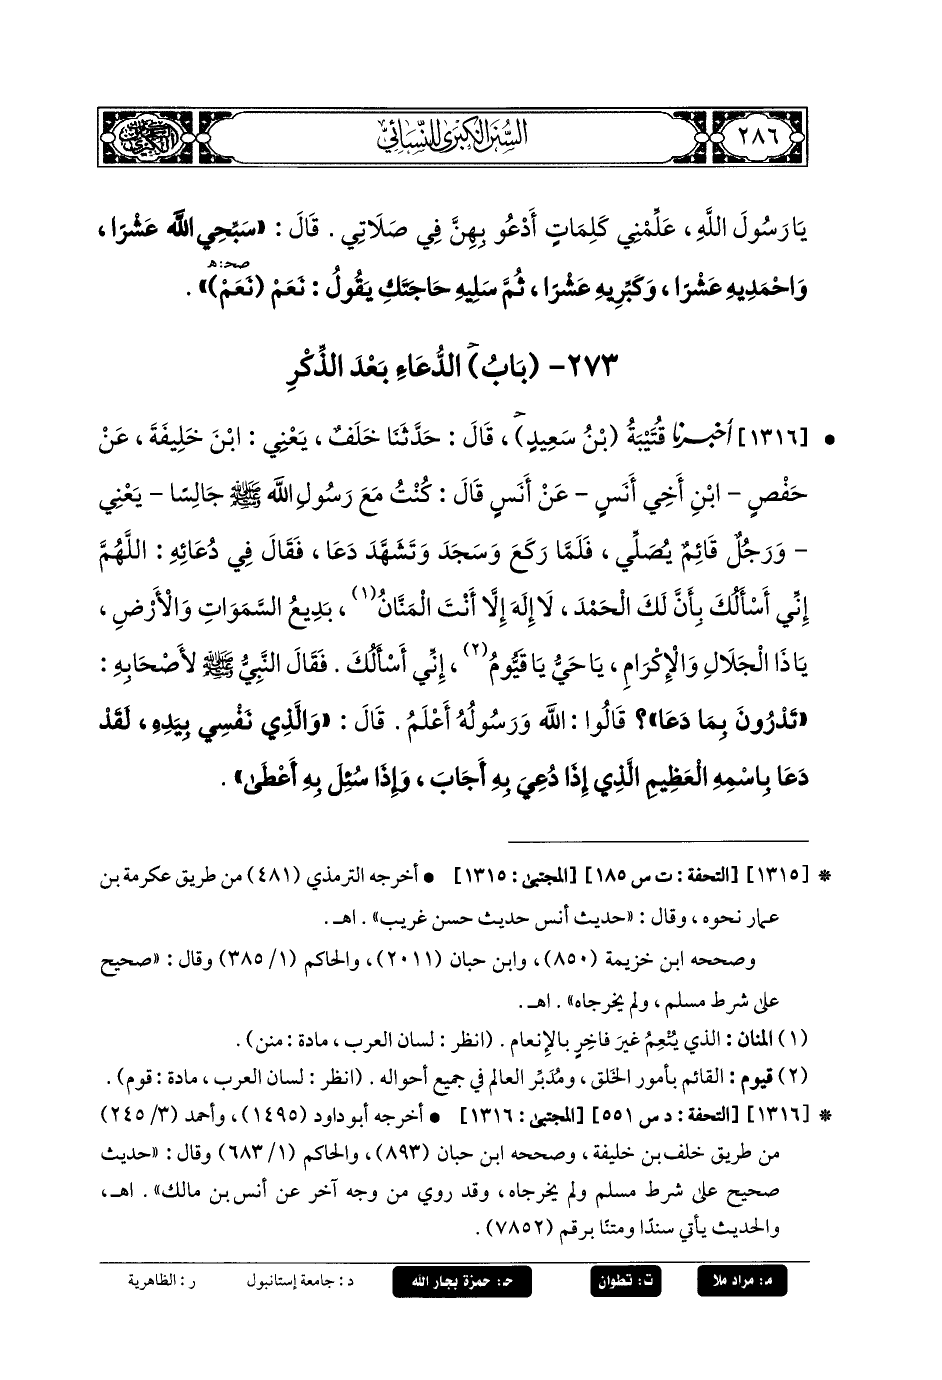 السُّنَنُ الكِبْرَى لِلنَّسَائِيِّ ٢٨٦
يَا رَسُولَ اللَّهِ ، عَلِّمْنِي كَلِمَاتٍ أَدْعُو بِهِنَّ فِي صَلَاتِي . قَالَ : «سَبِّحِي اللَّهَ عَشْرًا ،
وَاحْمَدِيهِ عَشْرًا ، وَكَبِّرِيهِ عَشْرًا ، ثُمَّ سَلِيهِ حَاجَتَكِ يَقُولُ : نَعَمْ (نَعَمْ)صحـ:هـ» .
٢٧٣- (بَابُ)حـ الدُّعَاءِ بَعْدَ الذِّكْرِ
• [١٣١٦] أَخْبَرَنَا قُتَيْبَةُ (بْنُ سَعِيدٍ)حـ ، قَالَ : حَدَّثَنَا خَلَفٌ ، يَعْنِي : ابْنَ خَلِيفَةَ ، عَنْ
حَفْصٍ - ابْنِ أَخِي أَنَسٍ - عَنْ أَنَسٍ قَالَ : كُنْتُ مَعَ رَسُولِ اللَّهِ ﷺ جَالِسًا - يَعْنِي
- وَرَجُلٌ قَائِمٌ يُصَلِّي ، فَلَمَّا رَكَعَ وَسَجَدَ وَتَشَهَّدَ دَعَا ، فَقَالَ فِي دُعَائِهِ : اللَّهُمَّ
إِنِّي أَسْأَلُكَ بِأَنَّ لَكَ الْحَمْدَ ، لَا إِلَهَ إِلَّا أَنْتَ الْمَنَّانُ(١) ، بَدِيعُ السَّمَوَاتِ وَالْأَرْضِ ،
يَا ذَا الْجَلَالِ وَالْإِكْرَامِ ، يَا حَيُّ يَا قَيُّومُ(٢) ، إِنِّي أَسْأَلُكَ . فَقَالَ النَّبِيُّ ﷺ لأَصْحَابِهِ :
«تَدْرُونَ بِمَا دَعَا»؟ قَالُوا : اللَّه وَرَسُولُهُ أَعْلَمُ . قَالَ : «وَالَّذِي نَفْسِي بِيَدِهِ ، لَقَدْ
دَعَا بِاسْمِهِ الْعَظِيمِ الَّذِي إِذَا دُعِيَ بِهِ أَجَابَ ، وَإِذَا سُئِلَ بِهِ أَعْطَىٰ» .
* [١٣١٥] [التحفة : ت س ١٨٥] [المجتبىٰ : ١٣١٥] • أخرجه الترمذي (٤٨١) من طريق عكرمة بن
عمار نحوه ، وقال : «حديث أنس حديث حسن غريب» . اهـ .
وصححه ابن خزيمة (٨٥٠)، وابن حبان (٢٠١١)، والحاكم (١/ ٣٨٥) وقال : «صحيح
على شرط مسلم ، ولم يخرجاه» . اهـ .
(١) المنان : الذي يُنْعِمُ غيرَ فاخِرٍ بالإنعام . (انظر : لسان العرب ، مادة : منن) .
(٢) قيوم : القائم بأمور الخَلق ، ومُدَبِّر العالم في جميع أحواله . (انظر : لسان العرب ، مادة : قوم) .
* [١٣١٦] [التحفة : د س ٥٥١] [المجتبىٰ : ١٣١٦] • أخرجه أبو داود (١٤٩٥)، وأحمد (٣/ ٢٤٥)
من طريق خلف بن خليفة ، وصححه ابن حبان (٨٩٣)، والحاكم (١/ ٦٨٣) وقال : «حديث
صحيح على شرط مسلم ولم يخرجاه ، وقد روي من وجه آخر عن أنس بن مالك» . اهـ،
والحديث يأتي سندًا ومتنًا برقم (٧٨٥٢) .
مـ: مراد ملا ت: تطوان حـ: حمزة بجار الله د : جامعة إستانبول ر : الظاهرية